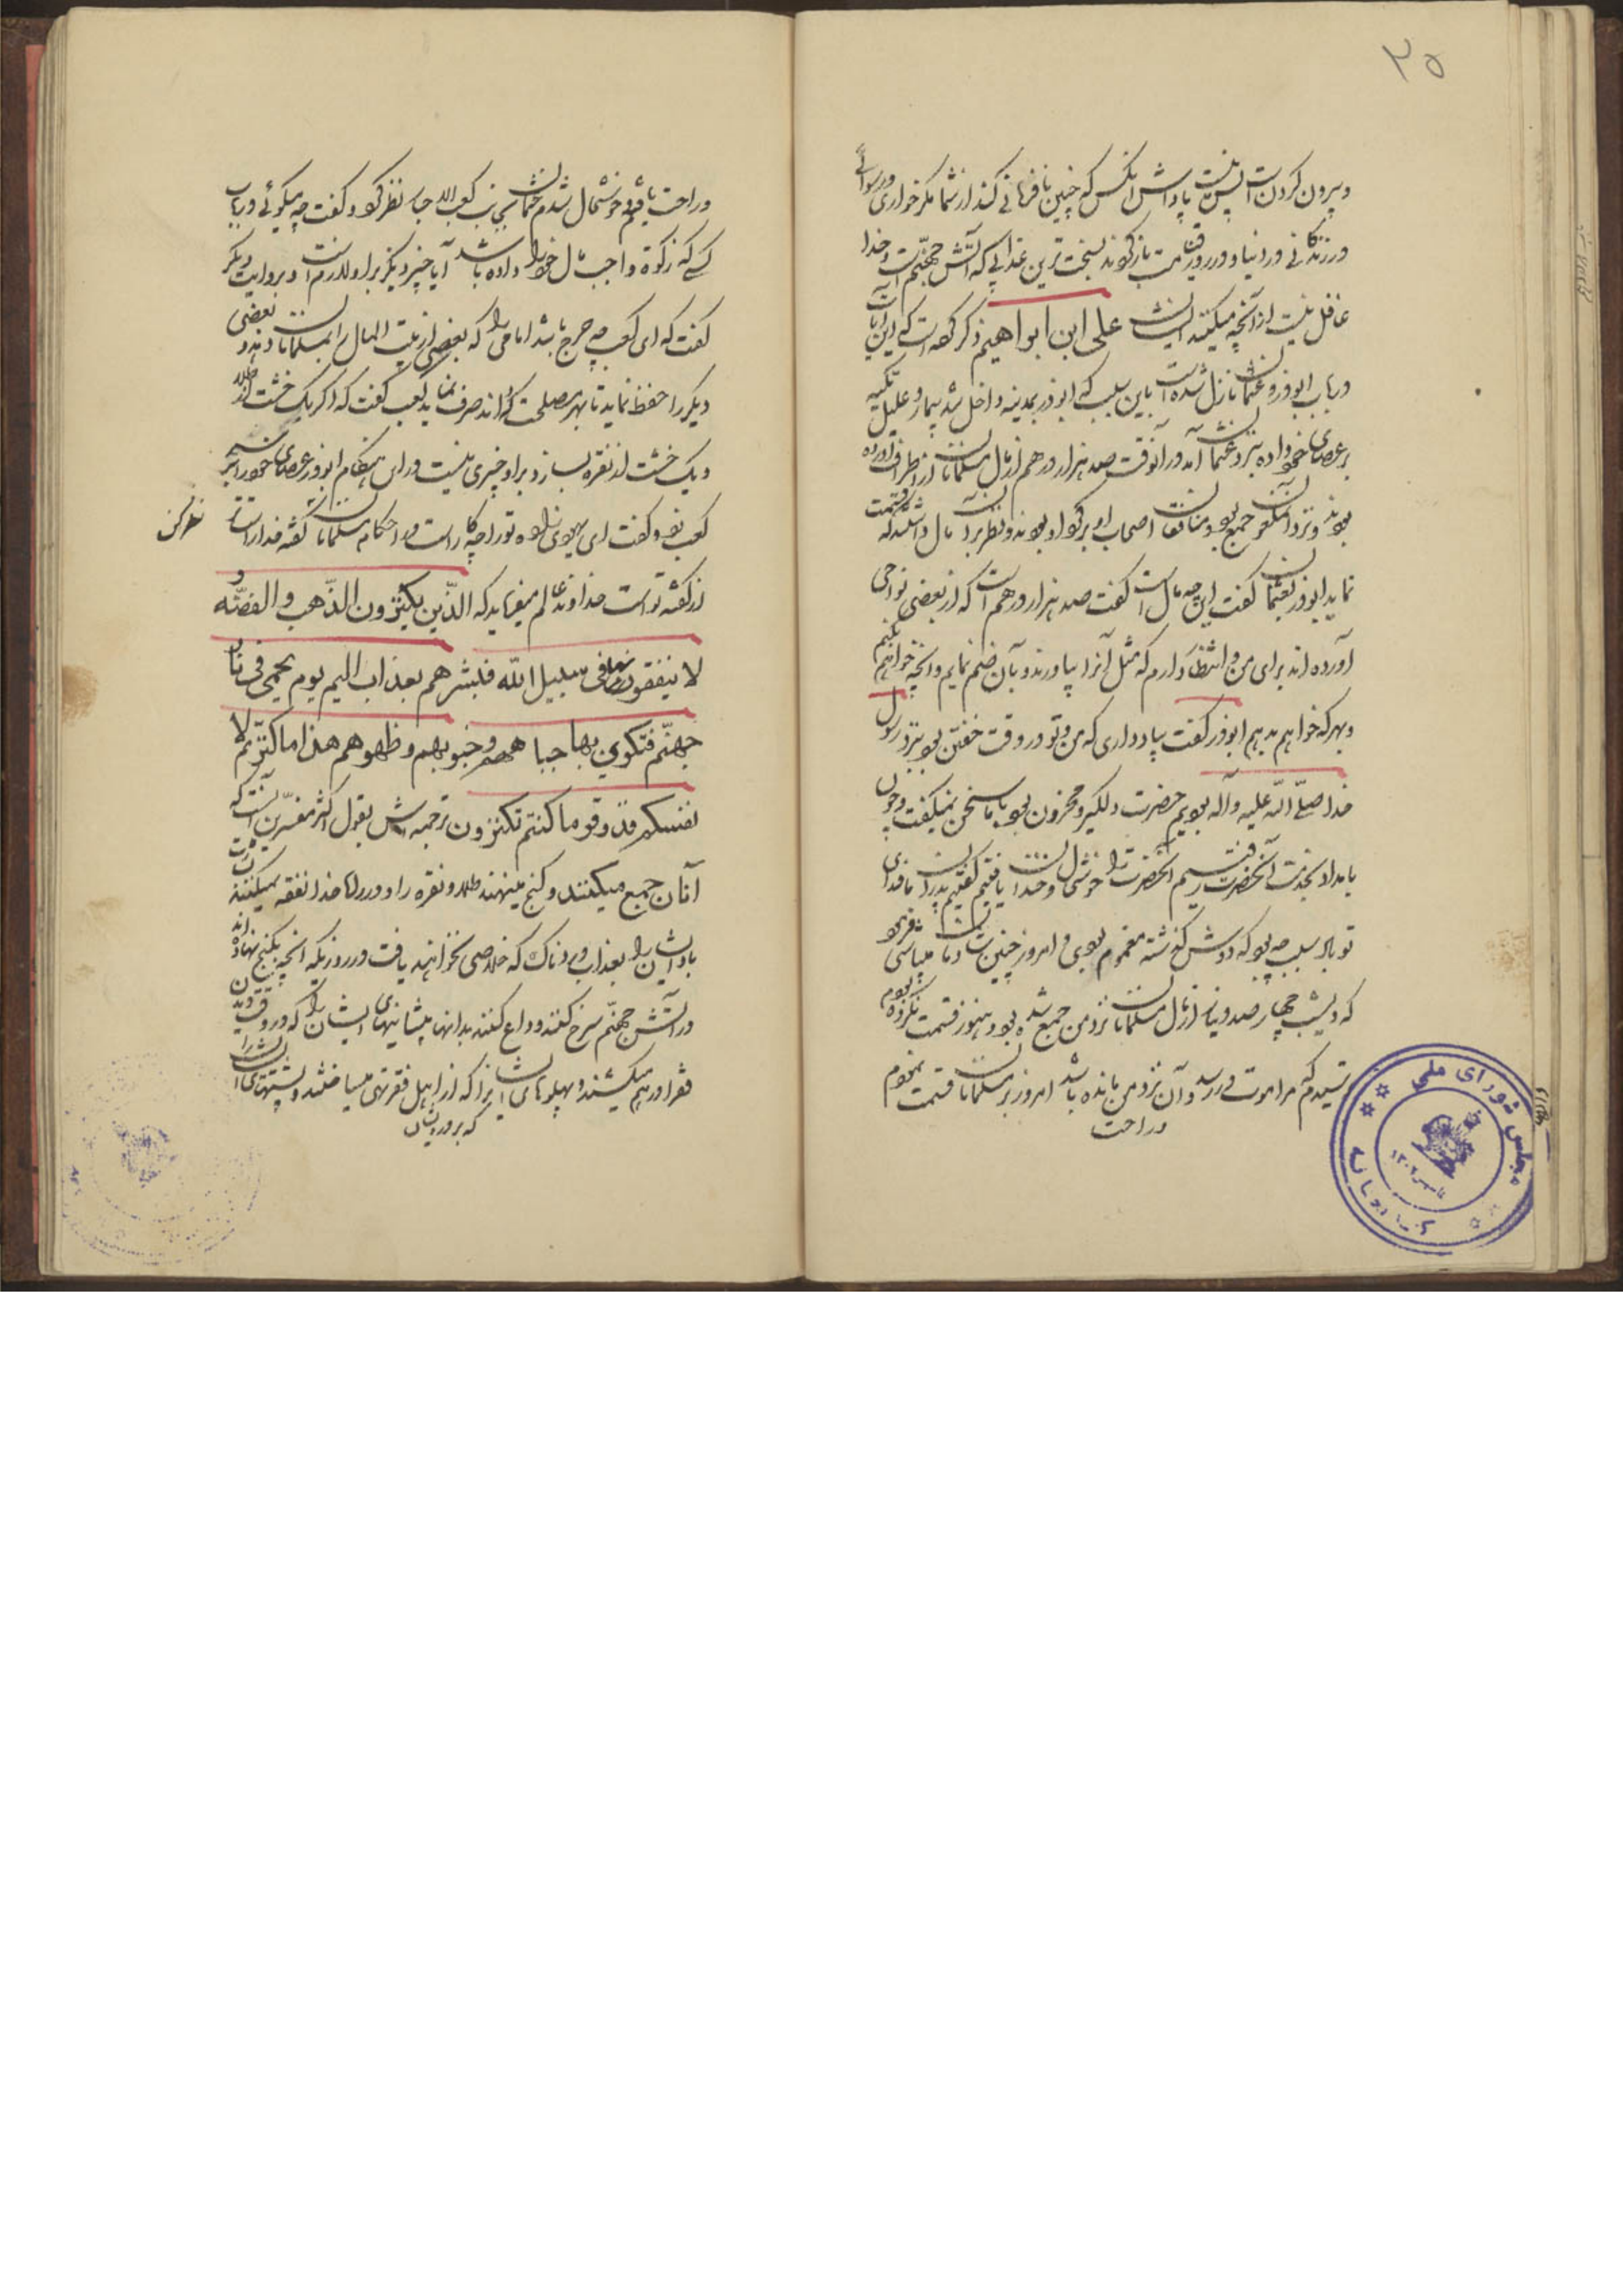 ۳۵
وبیرون کردن است پس نیست پاداش آنکس که چنین نافرمانی کند از شما مگر خواری ورسوائی
در زندگانی در دنیا و در روز قیامت بازگردند بسخت‌ترین عذابی که آتش جهنّم است وخدا
غافل نیست از آنچه میکنند ایشان علی ابن ابراهیم ذکر کرده است که این آیات
درباب ابوذر و عثمان نازل شده است باین سبب که ابوذر بمدینه داخل شد بیمار و علیل تکیه
برعصای خود داده بنزد عثمان آمد و در آنوقت صد هزار درهم از مال مسلمانان از اطراف آورده
بودند و نزد آن جمع بود و منافقان اصحاب او بر گرد او بودند و نظر بر آن مال داشتند که قسمت
نماید ابوذر بعثمان گفت این چه مال است گفت صد هزار درهم است که از بعضی نواحی
آورده اند برای من و انتظار دارم که مثل آنرا بیاورند و بآن ضم نمایم و آنچه خواهم بکنم
و بهر که خواهم بدهم ابوذر گفت بیاد داری که من و تو در وقت خفتن بنزد رسول
خدا صلّی اللّه علیه وآله بودیم حضرت دلگیر و محزون بود با ما سخن نمیگفت و چون
بامداد بخدمت آنحضرت رفتیم آنحضرت را خوشحال و خندان یافتیم گفتیم پدران ما فدای
تو باد سبب چه بود که دوش گذشته مغموم بودی و امروز چنین شادمان میباشی فرمود
که دیشب چهار صد دینار از مال مسلمانان نزد من جمع شده بود و هنوز قسمت نکرده بودم
ترسیدم که مرا موت در رسد و آن نزد من مانده باشد امروز بر مسلمانان قسمت نمودم
وراحت
مجلس شورای ملی
وراحت یافتم و خوشحال شدم عثمان بجانب کعب الاحبار نظر کرد و گفت چه میگوئی در باب
کسی که زکوة واجب مال خود را داده باشد آیا چیز دیگر بر او لازم است و بروایت دیگر
گفت که ای کعب چه حرج باشد امامی را که بعضی از بیت المال را بمسلمانان دهد و بعضی
دیگر را حفظ نماید تا بهر مصلحت که داند صرف نماید کعب گفت که اگر یک خشت از طلا
ویک خشت از نقره بسازد بر او چیزی نیست در این هنگام ابوذر عصای خود را بر سر
کعب زد و گفت ای یهودی زاده تو را چه کار است در احکام مسلمانان گفته خدا راست‌تر
نظر کن
از گفته تو است خداوند عالم میفرماید که الّذین یکنزون الذّهب والفضّه و
لا ینفقونها فی سبیل اللّه فبشرهم بعذاب الیم یوم یحمی فی نار
جهنّم فتکوی بها جباههم وجنوبهم وظهورهم هذا ما کنزتم لا
نفسکم فذوقو ما کنتم تکنزون ترجمه اش بقول اکثر مفسّرین آنست که
آنان جمع میکنند و گنج مینهند طلا و نقره را و در راه خدا نفقه نمیکنند بشارت
باد ایشان را بعذاب دردناک که خلاصی نخواهند یافت در روزیکه آنچه بگنج نهاده اند
در آتش جهنّم سرخ کنند و داغ کنند بدانها پیشانیهای ایشان را که در وقت دیدن
فقرا درهم میکشند و پهلوهای ایشانرا که از اهل فقر تهی میساختند و پشتهای ایشان را
که بر درویشان